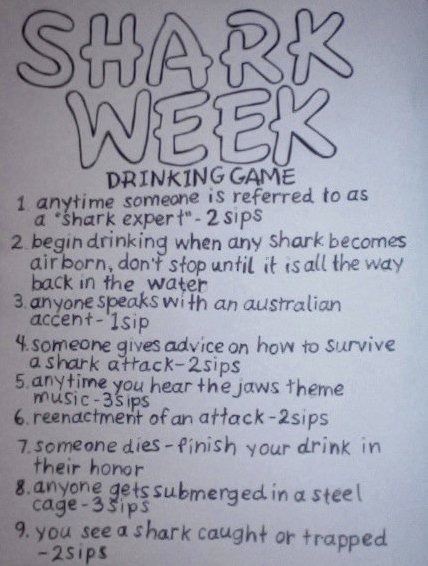 SHARK
WEEK
DRINKING GAME
1. anytime someone is referred to as
a "shark expert" - 2 sips
2. begin drinking when any shark becomes
airborn, don't stop until it is all the way
back in the water
3. anyone speaks with an australian
accent - 1 sip
4. someone gives advice on how to survive
a shark attack - 2 sips
5. anytime you hear the jaws theme
music - 3 sips
6. reenactment of an attack - 2 sips
7. someone dies - finish your drink in
their honor
8. anyone gets submerged in a steel
cage - 3 sips
9. you see a shark caught or trapped
- 2 sips